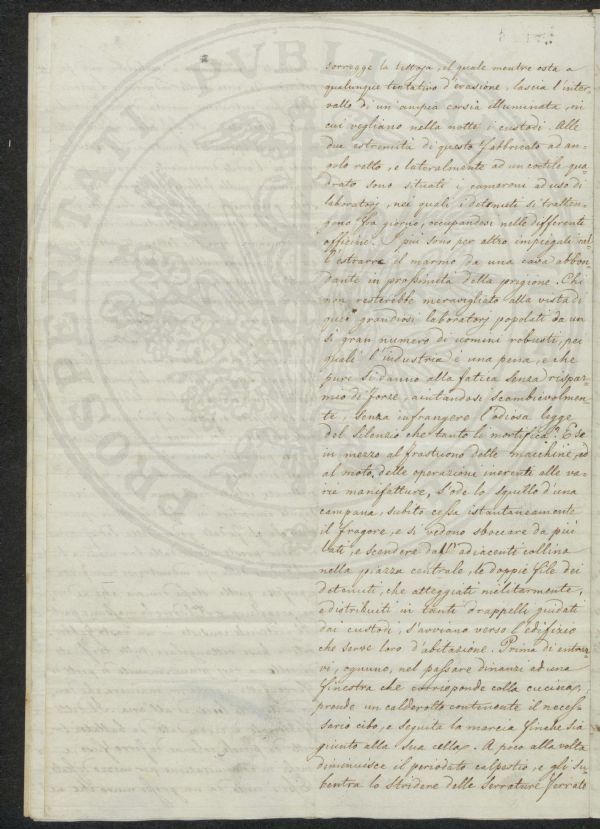 PROSPERITATI PVBLICAE
sorregge la tettoja, il quale mentre osta a
qualunque tentativo d'evasione, lascia l'inter-
vallo di un'ampia corsia illuminata, in
cui vegliano nella notte i custodi. Alle
due estremità di questo fabbricato ad an-
golo retto, e lateralmente ad un cortile qua-
drato sono situati i cameroni ad uso di
laboratorj, nei quali i detenuti si tratten-
gono fra giorno, occupandosi nelle differenti
officine. I più sono per altro impiegati nel-
l'estrarre il marmo da una cava abbon-
dante in prossimità della prigione. Chi
non resterebbe meravigliato alla vista di
quei grandiosi laboratorj popolati da un
sì gran numero di uomini robusti, pei
quali l'industria è una pena, e che
pure si danno alla fatica senza rispar-
mio di forze, aiutandosi scambievolmen-
te, senza infrangere l'odiosa legge
del silenzio che tanto li mortifica? E se
in mezzo al frastuono delle macchine, ed
al moto delle operazioni inerenti alle va-
rie manifatture, s'ode lo squillo d'una
campana, subito cessa istantaneamente
il fragore, e si vedono sboccare da più
lati, e scendere dall'adiacente collina
nella piazza centrale, le doppie file dei
detenuti, che atteggiati militarmente,
e distribuiti in tanti drappelli guidati
dai custodi, s'avviano verso l'edifizio
che serve loro d'abitazione. Prima di entrar-
vi, ognuno, nel passare dinanzi ad una
finestra che corrisponde colla cucina,
prende un calderotto contenente il neces-
sario cibo, e seguita la marcia finchè sia
giunto alla sua cella. A poco alla volta
diminuisce il periodato calpestio, e gli su-
bentra lo stridere delle serrature ferrate